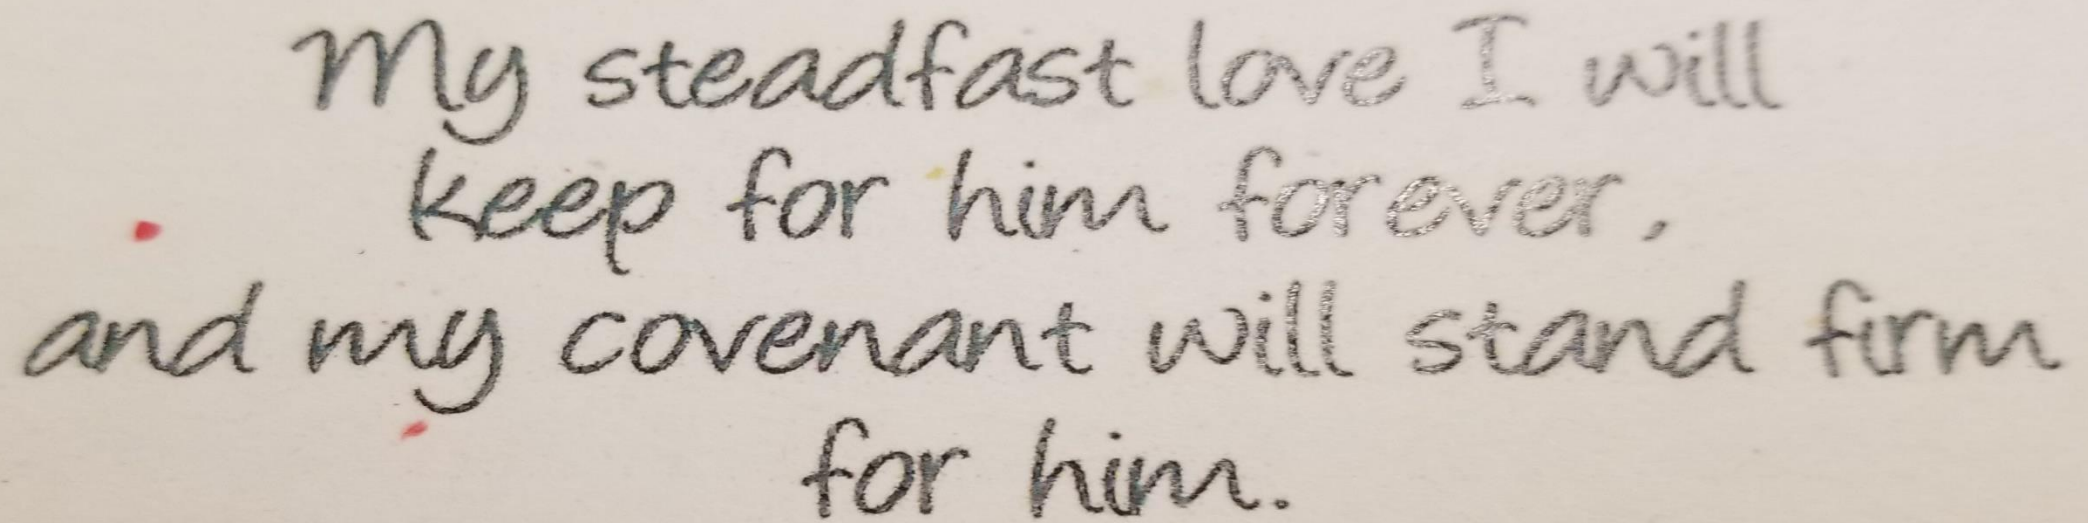 My steadfast love I will
keep for him forever,
and my covenant will stand firm
for him.